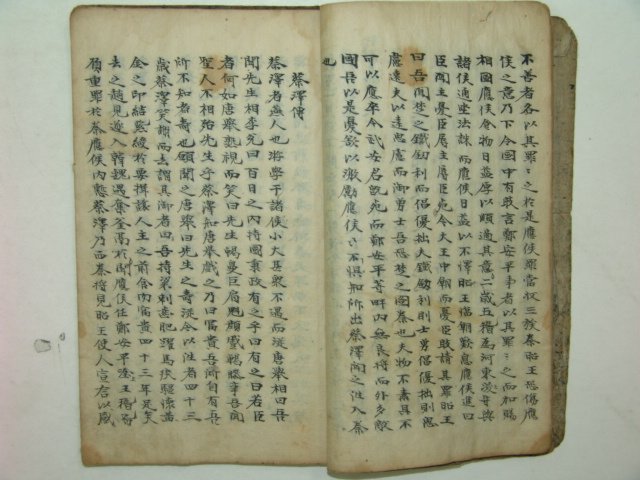 不善者各以其罪〻之於是應侯罪當收三族秦昭王恐傷應
侯之意乃下令國中有敢言鄭安平事者以其罪〻之而加賜
相國應侯食物日益厚以順適其意二歲王稽爲河東守與
諸侯通坐法誅而應侯日益以不懌昭王臨朝歎息應侯進曰
臣聞主憂臣辱主辱臣死今大王中朝而憂臣敢請其罪昭王
曰吾聞楚之鐵劒利而倡優拙夫鐵劒利則士勇倡優拙則思
慮遠夫以遠思慮而御勇士吾恐楚之圖秦也夫物不素具不
可以應卒今武安君旣死而鄭安平等畔內無良將而外多敵
國吾以是憂欲以激勵應侯〻懼不知所出蔡澤聞之徃入秦
也
蔡澤傳
蔡澤者燕人也游學干諸侯小大甚衆不遇而從唐擧相曰吾
聞先生相李兌曰百日之內持國秉政有之乎曰有之曰若臣
者何如唐擧熟視而笑曰先生曷鼻巨肩魋顔蹙齃膝攣吾聞
聖人不相殆先生乎蔡澤知唐擧戱之乃曰富貴吾所自有吾
所不知者壽也願聞之唐擧曰先生之壽從今以徃者四十三
歲蔡澤笑謝而去謂其御者曰吾持粱刺齒肥躍馬疾驅懷黃
金之印結紫綬於要揖讓人主之前食肉富貴四十三年足矣
去之趙見逐入韓魏遇奪釜鬲於塗聞應侯任鄭安平王稽皆
負重罪於秦應侯內慙蔡澤乃西入秦將見昭王使人宣言以感